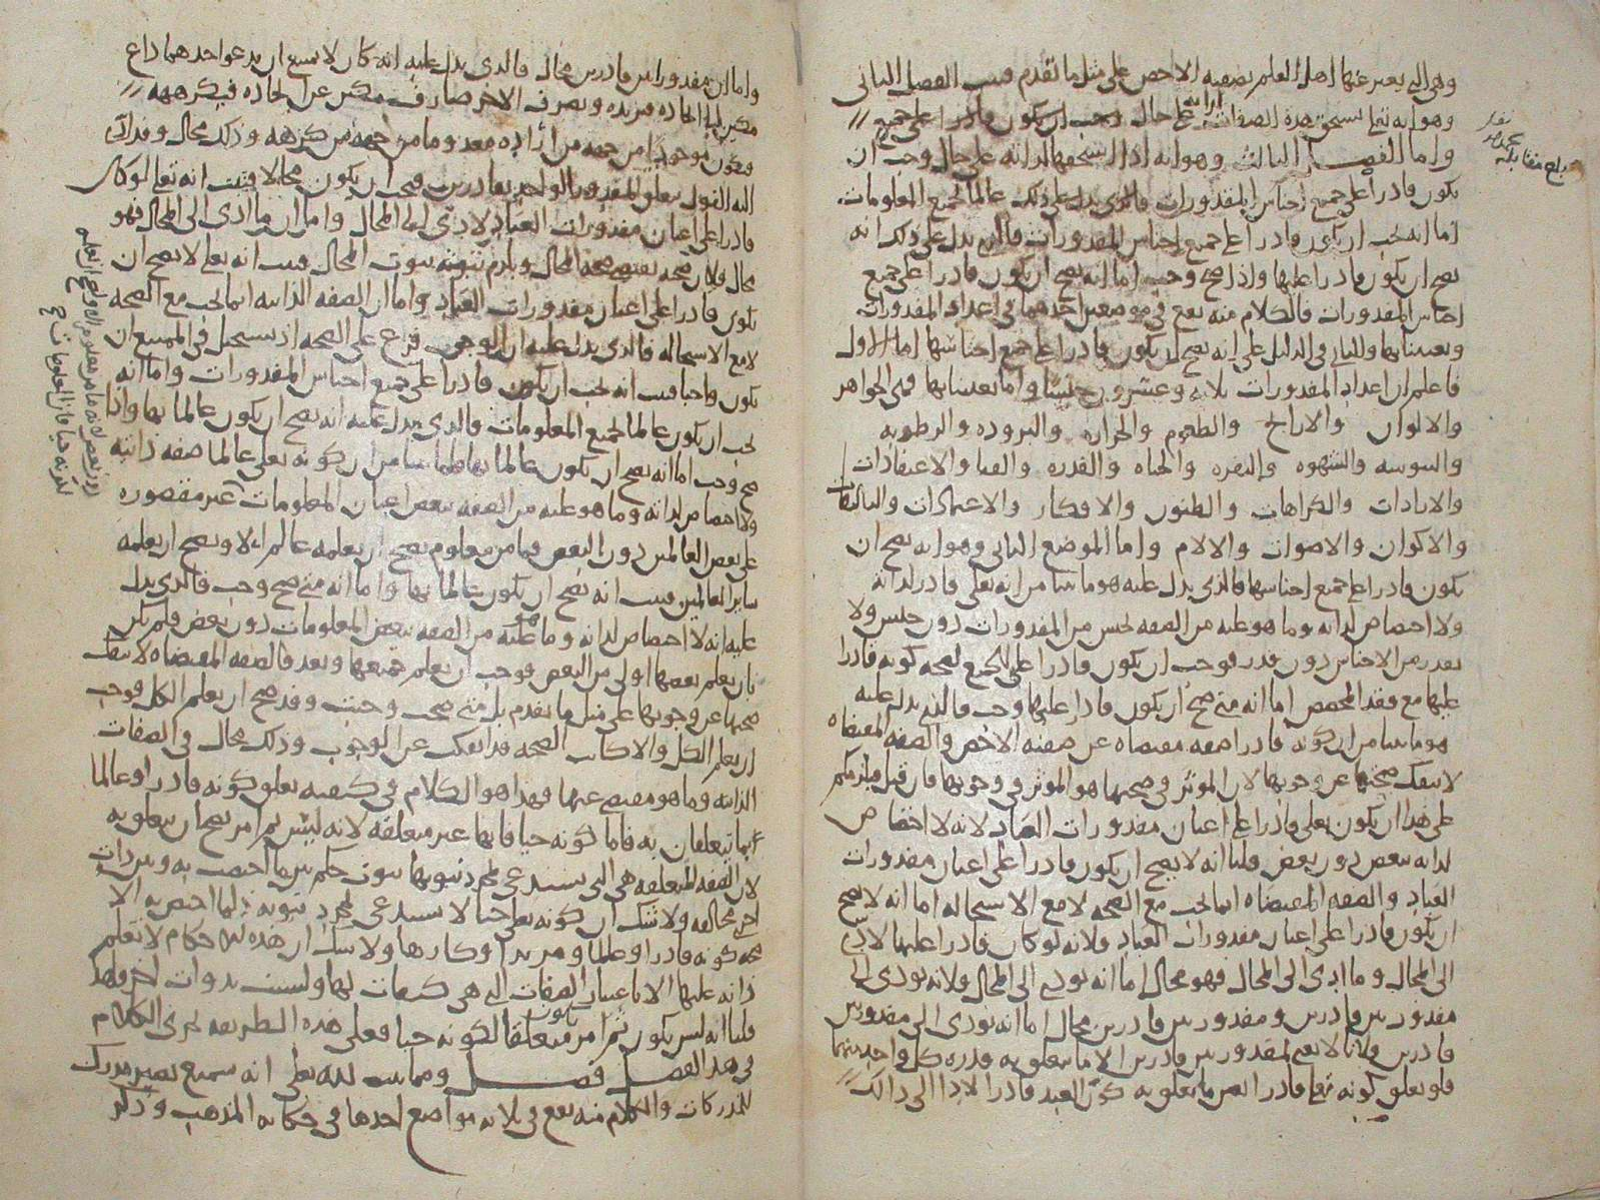 وهي التي يعبر عنها اهل العلم بصفته الاخص على مثل ما تقدم فثبت الفصل الثاني
وهو انه تعالى يستحق هذه الصفات لذاته على حال وجب ان يكون قادرا على جميع
واما الفصل الثالث وهو انه اذا استحقها لذاته على حال وجب ان
يكون قادرا على جميع اجناس المقدورات فالذي يدل على ذلك عالما لجميع المعلومات
اما انه يجب ان يكون قادرا على جميع اجناس المقدورات فالذي يدل على ذلك انه
يصح ان يكون قادرا عليها واذا صح وجب اما انه يصح ان يكون قادرا على جميع
اجناس المقدورات فالكلام منه يقع في موضعين احدهما في اعداد المقدورات
وتعيينها والثاني في الدليل على انه يصح ان يكون قادرا على جميع اجناسها اما الاول
فاعلم ان اعداد المقدورات ثلاثه وعشرون جنسا واما تعيينها فهي الجواهر
والالوان والاراييح والطعوم والحراره والبروده والرطوبه
واليبوسه والشهوه والنفره والحياه والقدره والفنا والاعتقادات
والارادات والكراهات والظنون والافكار والاعتمادات والتاليفات
والاكوان والاصوات والالام واما الموضع الثاني وهو انه يصح ان
يكون قادرا على جميع اجناسها فالذي يدل عليه هو ما بينا من انه تعالى قادر لذاته
ولا اختصاص لذاته وما هو عليه من الصفه لجنس من المقدورات دون جنس ولا
بقدر من الاجناس دون قدر فوجب ان يكون قادرا على الجميع لصحه كونه قادرا
عليها مع فقد المخصص اما انه متى صح ان يكون قادرا عليها وجب فالذي يدل عليه
هو ما بينا من ان كونه قادرا صفه مقتضاه عن صفته الاخص والصفه المقتضاه
لا تنفك صحتها عن وجوبها لان الموثر في صحتها هو الموثر في وجوبها فان قيل فيلزمكم
على هذا ان يكون تعالى قادرا على اعيان مقدورات العباد لانه لا اختصاص
لذاته ببعض دون بعض قلنا انه لا يصح ان يكون قادرا على اعيان مقدورات
العباد والصفه المقتضاه انما تجب مع الصحه لا مع الاستحاله اما انه لا يصح
ان يكون قادرا على اعيان مقدورات العباد فلانه لو كان قادرا عليها لادى
الى المحال وما ادى الى المحال فهو محال اما انه يودي الى المحال فلانه يودي الى
مقدور بين قادرين ومقدور بين قادرين محال اما انه يودي الى مقدور بين
قادرين فلانا لا نعني بمقدور بين قادرين الا ما يتعلق به قدره كل واحد منهما
فلو تعلق كونه تعالى قادرا بعين ما يتعلق به كون العبد قادرا لادا الى ذالك
بلغ مقابله
واما ان مقدورا بين قادرين محال فالذي يدل عليه انه كان لا يمتنع ان يدعو احدهما داع
مكين الى ايجاده فيريده ويصرف الاخر صارف مكين عن ايجاده فيكرهه
فيكون موجودا من جهه من اراده معدوما من جهه من كرهه وذلك محال وقد ادى
اليه القول بتعلق المقدور الواحد بقادرين فيجب ان يكون محالا فثبت انه تعالى لو كان
قادرا على اعيان مقدورات العباد لادى الى المحال واما ان ما ادى الى المحال فهو
محال فلان صحته تقتضي صحه المحال ويلزم ثبوته ثبوت المحال فثبت انه تعالى لا يصح ان
يكون قادرا على اعيان مقدورات العباد واما ان الصفه الذاتيه انما تجب مع الصحه
لا مع الاستحاله فالذي يدل عليه ان الوجوب فرع على الصحه اذ يستحيل في الممتنع ان
يكون واجبا فثبت انه يجب ان يكون قادرا على جميع اجناس المقدورات واما انه
يجب ان يكون عالما لجميع المعلومات فالذي يدل عليه انه يصح ان يكون عالما بها واذا
صح وجب اما انه يصح ان يكون عالما بها فلما بينا من ان كونه تعالى عالما صفه ذاتيه
ولا اختصاص لذاته وما هو عليه من الصفه ببعض اعيان المعلومات غير مقصوره
على بعض العالمين دون البعض فما من معلوم يصح ان يعلمه عالم الا ويصح ان يعلمه
ساير العالمين فثبت انه يصح ان يكون عالما بها واما انه متى صح وجب فالذي يدل
عليه انه لا اختصاص لذاته وما هو عليه من الصفه ببعض المعلومات دون بعض فلم يكن
بان يعلم بعضها اولى من البعض فوجب ان يعلم جميعها وبعد فالصفه المقتضاه لا تنفك
صحتها عن وجوبها على مثل ما تقدم بل متى صحت وجبت وقد صح ان يعلم الكل فوجب
ان يعلم الكل والا كانت الصحه قد انفكت عن الوجوب وذلك محال في الصفات
الذاتيه وما هو مقتضى عنها فهذا هو الكلام في كيفيه تعلق كونه قادرا وعالما
بما يتعلقان به فاما كونه حيا فانها غير متعلقه لانه ليس ثم امر يصح ان يتعلق به
لان الصفه المتعلقه هي التي تستدعي لمجرد ثبوتها ثبوت حكم بين ما اختصت به وبين ذات
اخرى مخالفه ولا شك ان كونه تعالى حيا لا يستدعي لمجرد ثبوته فيما اختص به الا
صحه كونه قادرا وعالما ومريدا وكارها ولا شك ان هذه احكام لا تعلم
ذاته عليها الا باعتبار الصفات التي هي كيفيات لها وليست بذوات اخر فلهذا
قلنا انه ليس يكون ثم امر متعلقا لكونه حيا فعلى هذه الطريقه يجري الكلام
في هذا الفصل فصل ومما يثبت لله تعالى انه سميع بصير مدرك
للمدركات والكلام منه يقع في ثلاثه مواضع احدها في حكايه المذهب وذكر